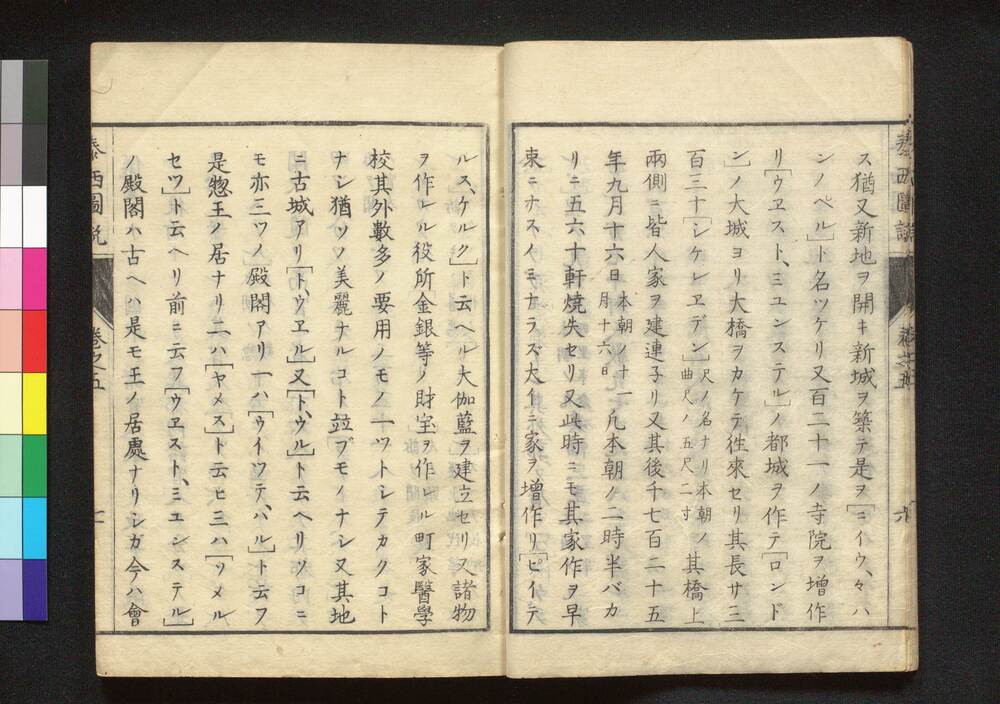 泰西圖説
卷之五
六
ス猶又新地ヲ開キ新城ヲ築テ是ヲ[ニイウ、々ハ
ンノペル]ト名ツケリ又百二十一ノ寺院ヲ増作
リ[ウヱスト、ミユンステル]ノ都城ヲ作テ[ロンド
ン]ノ大城ヨリ大橋ヲカケテ徃來セリ其長サ三
百三十[シケレヱデン]尺ノ名ナリ本朝ノ曲尺ノ五尺二寸其橋上
兩側ニ皆人家ヲ建連子リ又其後千七百二十五
年九月十六日本朝ノ十一月十六日凡本朝ノ二時半バカ
リニ五六十軒燒失セリ又此時ニモ其家作ヲ早
束ニナスノミナラズ大イニ家ヲ増作リ[ピイテ
ルス、ケルク]ト云ヘル大伽藍ヲ建立セリ又諸物
ヲ作レル役所金銀等ノ財宝ヲ作レル町家醫學
校其外數多ノ要用ノモノ一ツトシテカクコト
ナシ猶ソノ美麗ナルコト竝ブモノナシ又其地
ニ古城アリ[ト、ウヱル]又[ト、ウル]ト云ヘリソコニ
モ亦三ツノ殿閣アリ一ハ[ウイツテ、ハル]ト云フ
是惣王ノ居ナリ二ハ[ヤメス]ト云ヒ三ハ[ソメル
セツ]ト云ヘリ前ニ云フ[ウヱスト、ミユンステル]
ノ殿閣ハ古ヘハ是モ王ノ居處ナリシガ今ハ會
泰西圖説
卷之五
七